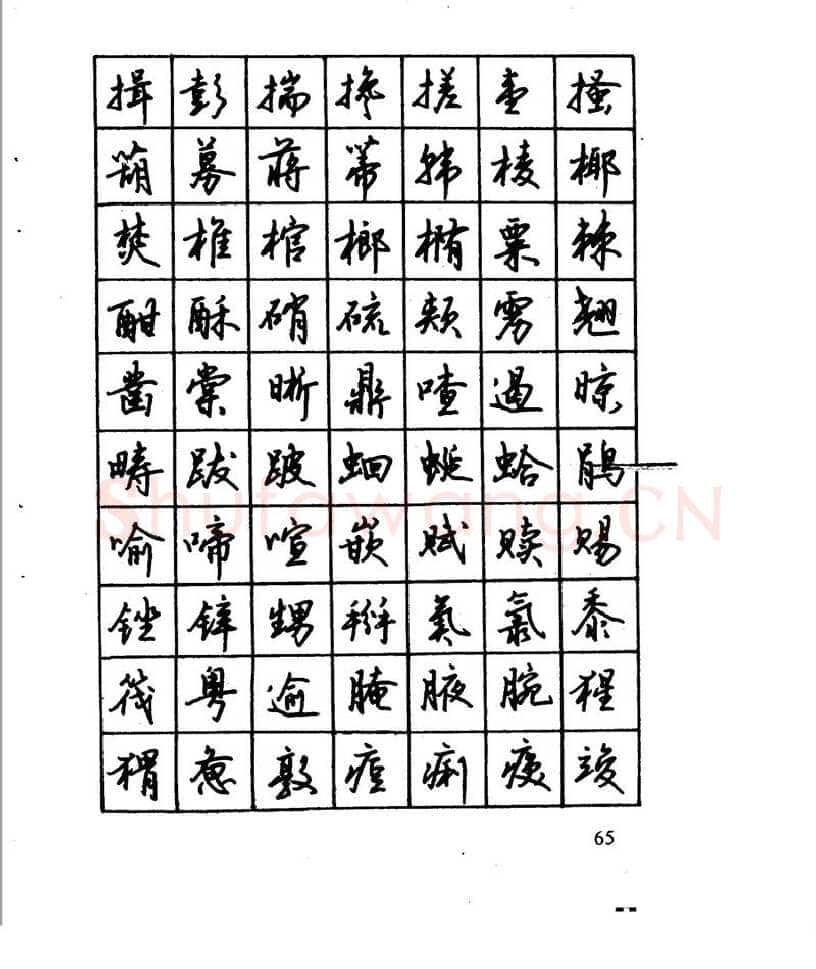 揖彭揣搀搓壹搔
葫募蒋蒂韩棱椰
焚椎棺榔椭粟棘
酣酥硝硫颊雳翘
凿棠晰鼎喳遏晾
畴跋跛蛔蜒蛤鹃
喻啼喧嵌赋赎赐
锉锌甥掰氮氯黍
筏粤逾腌腋腕猩
猬惫敦痘痢痪竣
65
Shufawang.CN